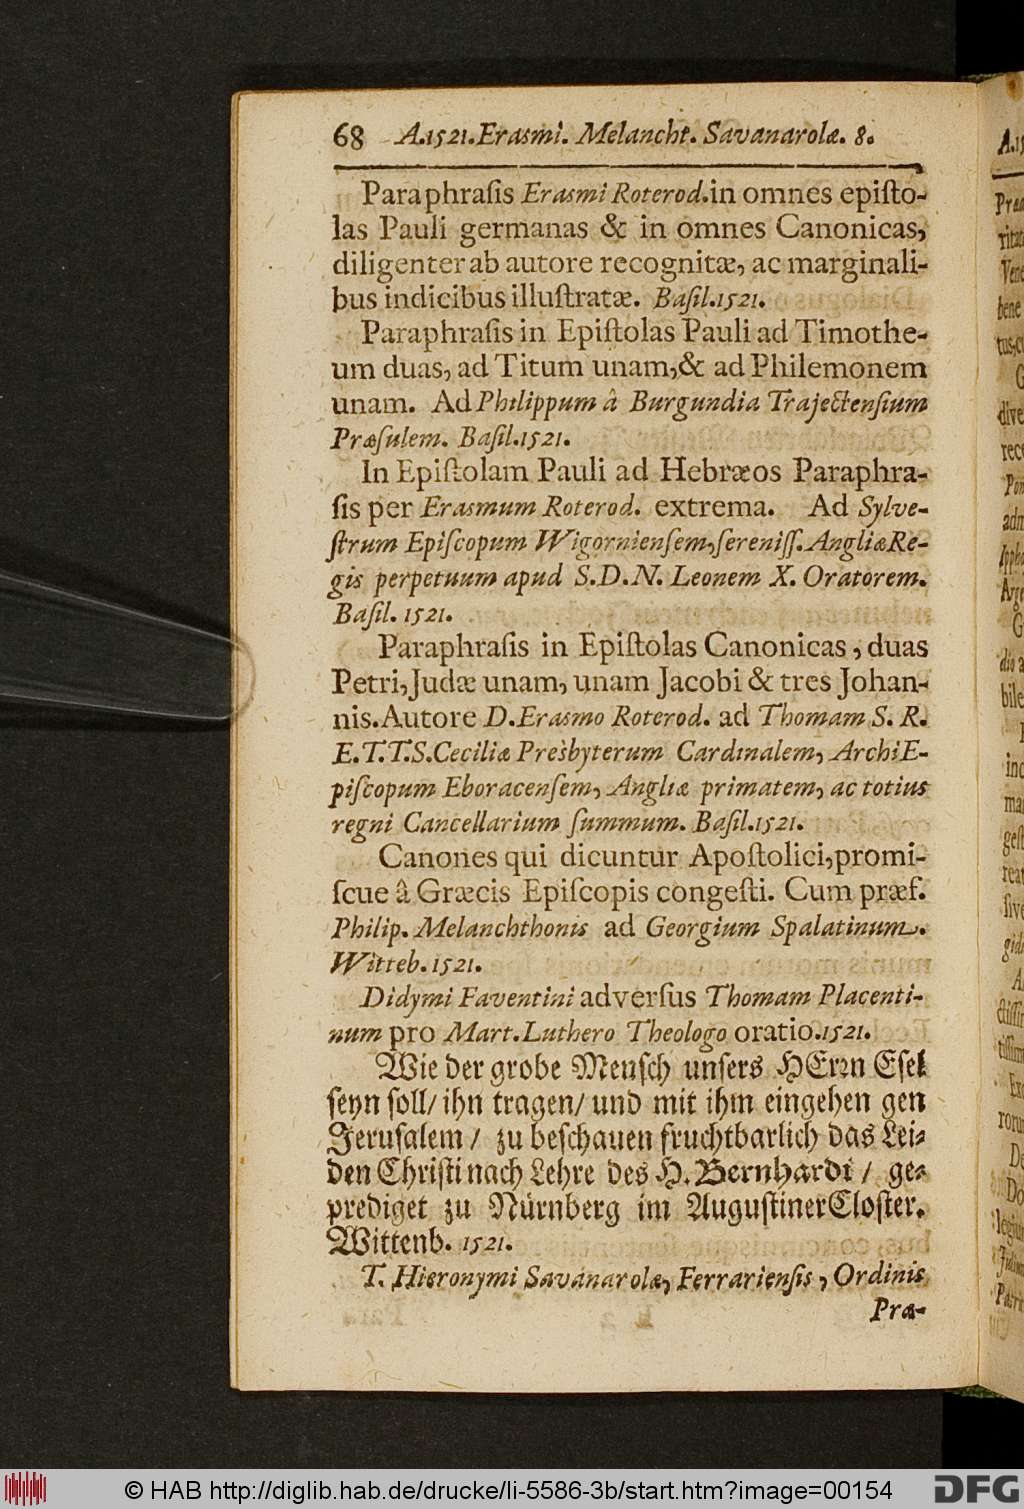 68 A.1521. Erasmi. Melancht. Savanarolæ. 8.
Paraphraſis Erasmi Roterod. in omnes epiſto-
las Pauli germanas & in omnes Canonicas,
diligenter ab autore recognitæ, ac marginali-
bus indicibus illuſtratæ. Baſil. 1521.
Paraphraſis in Epiſtolas Pauli ad Timothe-
um duas, ad Titum unam, & ad Philemonem
unam. Ad Philippum â Burgundia Trajectenſium
Præſulem. Baſil. 1521.
In Epiſtolam Pauli ad Hebræos Paraphra-
ſis per Erasmum Roterod. extrema. Ad Sylve-
ſtrum Epiſcopum Wigornienſem, ſereniſſ. Angliæ Re-
gis perpetuum apud S.D.N. Leonem X. Oratorem.
Baſil. 1521.
Paraphraſis in Epiſtolas Canonicas, duas
Petri, Judæ unam, unam Jacobi & tres Johan-
nis. Autore D. Erasmo Roterod. ad Thomam S. R.
E. T. T. S. Ceciliæ Presbyterum Cardinalem, ArchiE-
piſcopum Eboracenſem, Angliæ primatem, ac totius
regni Cancellarium ſummum. Baſil. 1521.
Canones qui dicuntur Apoſtolici, promi-
ſcue â Græcis Epiſcopis congeſti. Cum præf.
Philip. Melanchthonis ad Georgium Spalatinum.
Witteb. 1521.
Didymi Faventini adverſus Thomam Placenti-
num pro Mart. Luthero Theologo oratio. 1521.
Wie der grobe Menſch unſers HErrn Eſel
ſeyn ſoll/ ihn tragen/ und mit ihm eingehen gen
Jeruſalem/ zu beſchauen fruchtbarlich das Lei-
den Chriſti nach Lehre des H. Bernhardi/ ge-
prediget zu Nürnberg im Auguſtiner Cloſter.
Wittenb. 1521.
T. Hieronymi Savanarolæ, Ferrarienſis, Ordinis
Præ-
© HAB http://diglib.hab.de/drucke/li-5586-3b/start.htm?image=00154
DFG